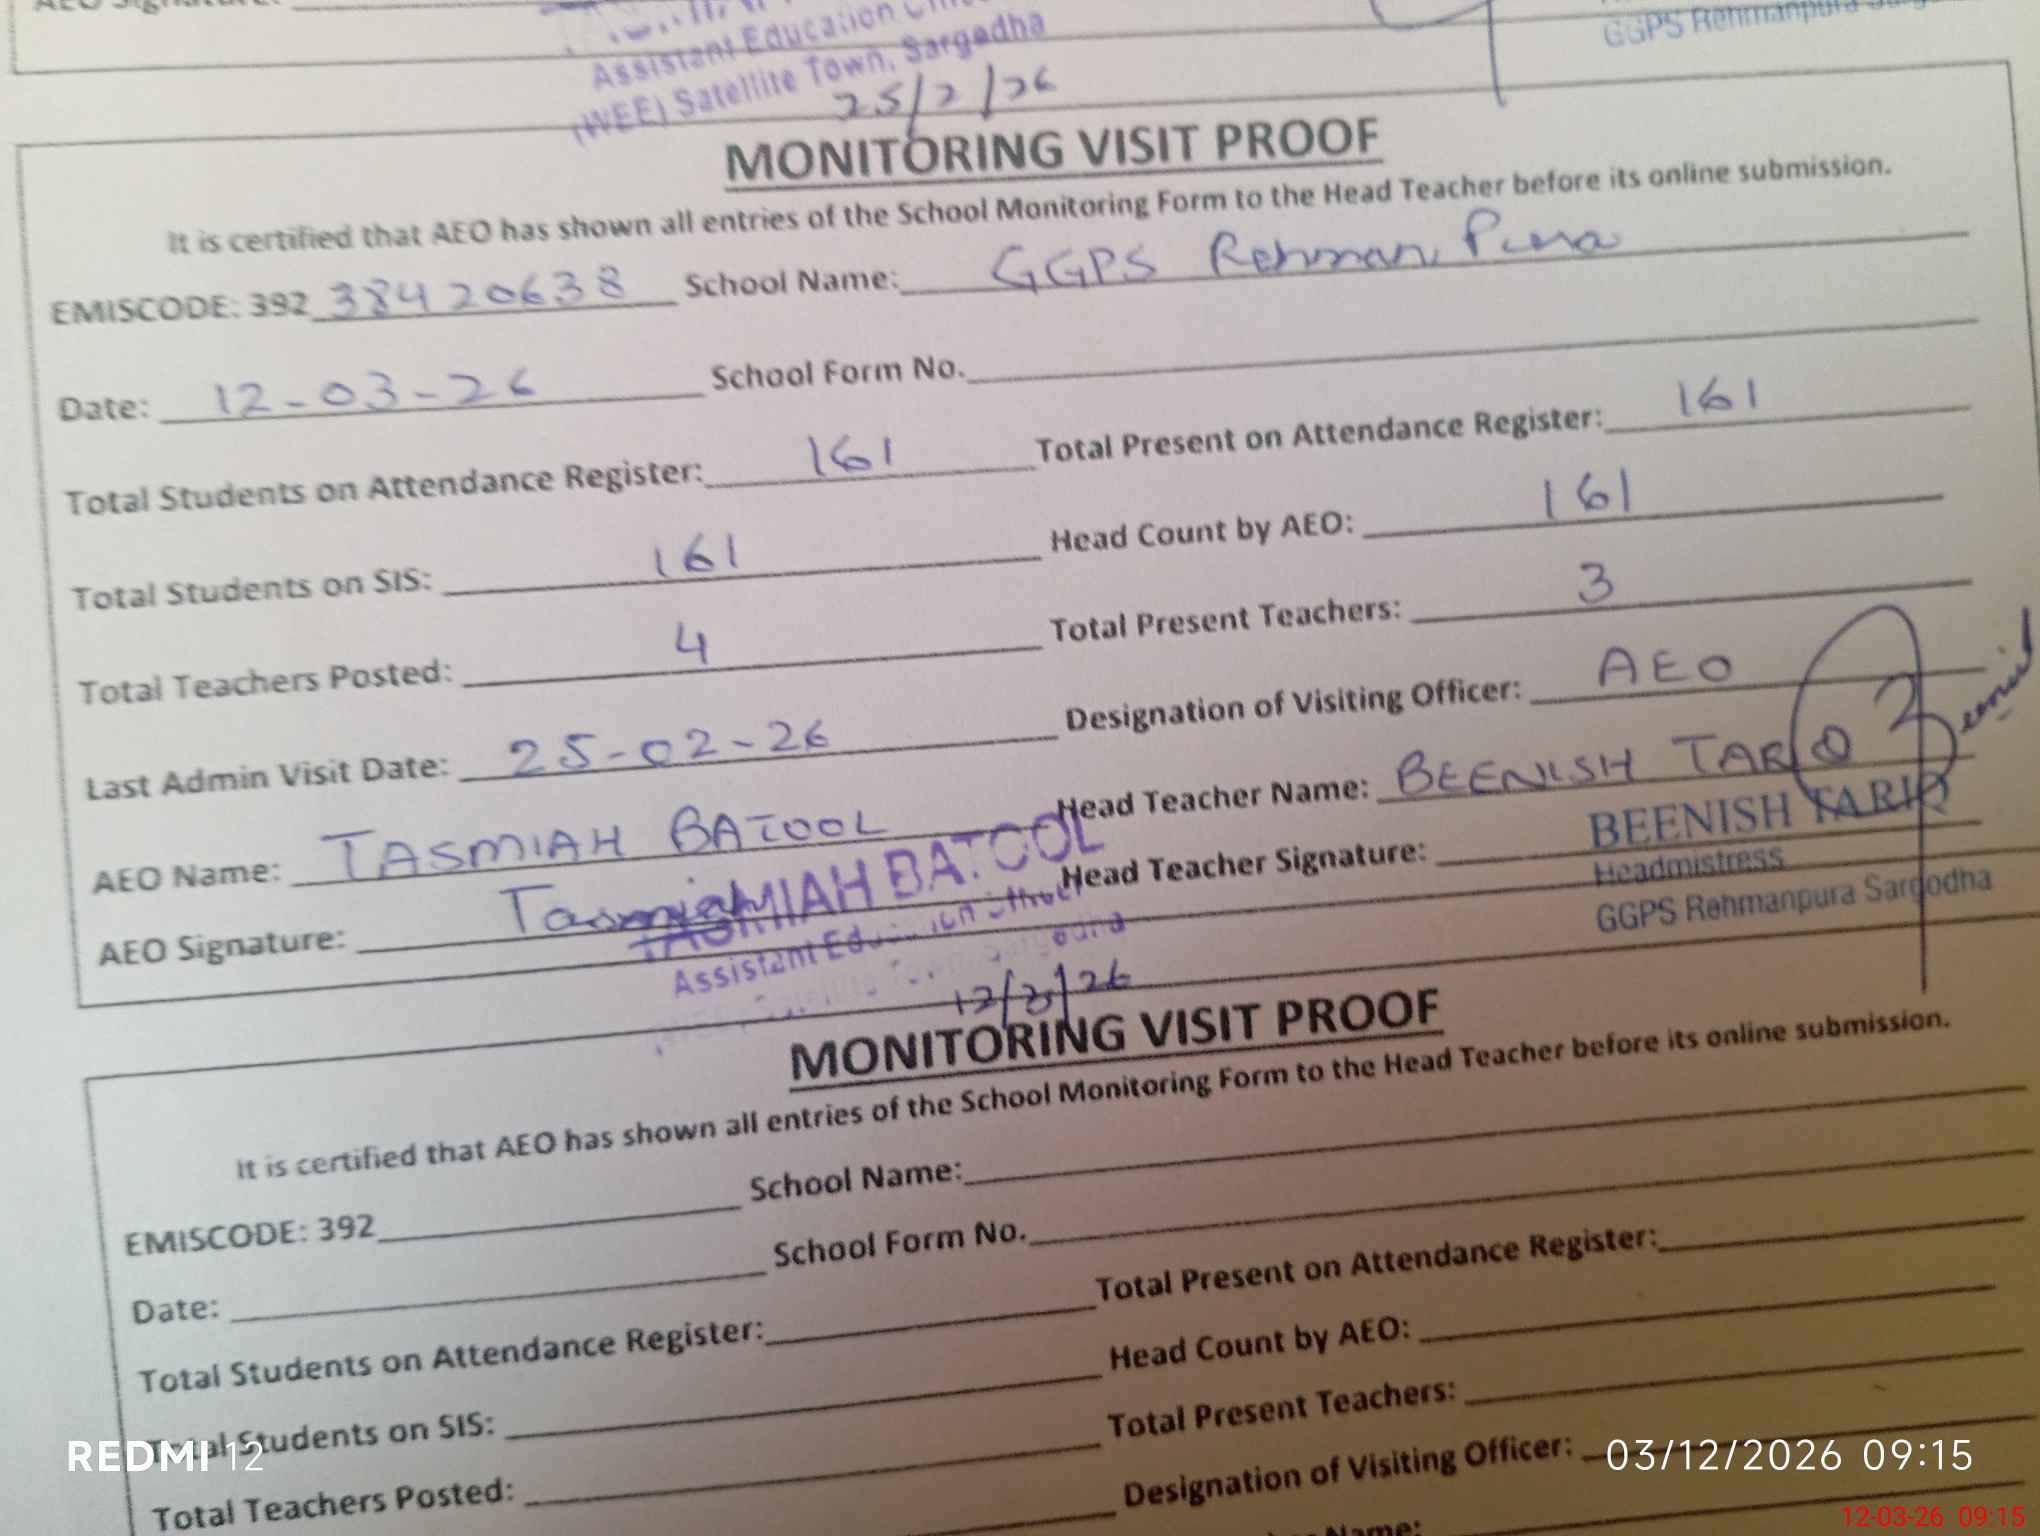 Assistant Education
(WEE) Satellite Town, Sargodha
25/2/26
GGPS Rehmanpura
MONITORING VISIT PROOF
It is certified that AEO has shown all entries of the School Monitoring Form to the Head Teacher before its online submission.
EMISCODE: 392 38420638 School Name: GGPS Rehman Pura
Date: 12-03-26 School Form No.
Total Students on Attendance Register: 161 Total Present on Attendance Register: 161
Total Students on SIS: 161 Head Count by AEO: 161
Total Teachers Posted: 4 Total Present Teachers: 3
Last Admin Visit Date: 25-02-26 Designation of Visiting Officer: AEO
AEO Name: TASMIAH BATOOL Head Teacher Name: BEENISH TARIQ
AEO Signature: Tasmiah Head Teacher Signature:
TASMIAH BATOOL
Assistant Education
12/3/26
BEENISH TARIQ
Headmistress
GGPS Rehmanpura Sargodha
MONITORING VISIT PROOF
It is certified that AEO has shown all entries of the School Monitoring Form to the Head Teacher before its online submission.
EMISCODE: 392 School Name:
Date: School Form No.
Total Students on Attendance Register: Total Present on Attendance Register:
Total Students on SIS: Head Count by AEO:
Total Teachers Posted: Total Present Teachers:
Designation of Visiting Officer:
Name:
REDMI 12
03/12/2026 09:15
12-03-26 09:15